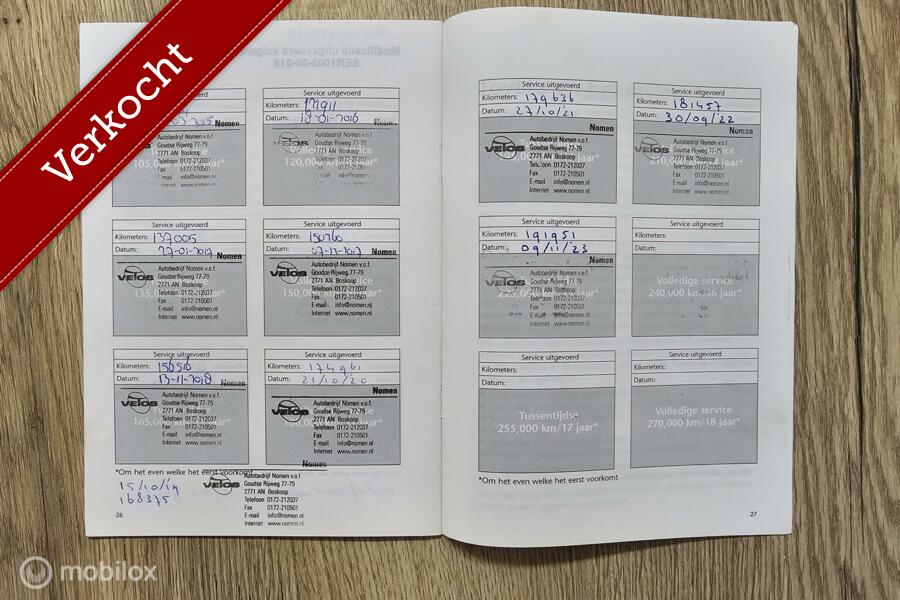 Verkocht
Modificatie uitgevoerd volgens
SER1002-20-218
Service uitgevoerd
Service uitgevoerd
Kilometers: 121911
Datum: 18-01-2016 Nomen
Autobedrijf Nomen v.o.f.
Goudse Rijweg 77-79
2771 AN Boskoop
Telefoon 0172-212037
Fax 0172-210501
E-mail info@nomen.nl
Internet www.nomen.nl
VELOS
120,000 km/
Autobedrijf Nomen v.o.f.
Goudse Rijweg 77-79
2771 AN Boskoop
Telefoon 0172-212037
Fax 0172-210501
E-mail info@nomen.nl
Internet www.nomen.nl
Service uitgevoerd
Kilometers: 137005
Datum: 27-01-2017 Nomen
VELOS
Autobedrijf Nomen v.o.f.
Goudse Rijweg 77-79
2771 AN Boskoop
Telefoon 0172-212037
Fax 0172-210501
E-mail info@nomen.nl
Internet www.nomen.nl
Service uitgevoerd
Kilometers: 150760
Datum: 07-12-2017 Nomen
VELOS
Autobedrijf Nomen v.o.f.
Goudse Rijweg 77-79
2771 AN Boskoop
Telefoon 0172-212037
Fax 0172-210501
E-mail info@nomen.nl
Internet www.nomen.nl
Service uitgevoerd
Kilometers: 156516
Datum: 13-11-2018 Nomen
VELOS
Autobedrijf Nomen v.o.f.
Goudse Rijweg 77-79
2771 AN Boskoop
Telefoon 0172-212037
Fax 0172-210501
E-mail info@nomen.nl
Internet www.nomen.nl
Service uitgevoerd
Kilometers: 174961
Datum: 21/10/20
Nomen
VELOS
Autobedrijf Nomen v.o.f.
Goudse Rijweg 77-79
2771 AN Boskoop
Telefoon 0172-212037
Fax 0172-210501
E-mail info@nomen.nl
Internet www.nomen.nl
*Om het even welke het eerst voorkomt
15/10/19
168375
Nomen
VELOS
Autobedrijf Nomen v.o.f.
Goudse Rijweg 77-79
2771 AN Boskoop
Telefoon 0172-212037
Fax 0172-210501
E-mail info@nomen.nl
Internet www.nomen.nl
26
Service uitgevoerd
Kilometers: 179636
Datum: 27/10/21
Nomen
VELOS
Autobedrijf Nomen v.o.f.
Goudse Rijweg 77-79
2771 AN Boskoop
Telefoon 0172-212037
Fax 0172-210501
E-mail info@nomen.nl
Internet www.nomen.nl
Service uitgevoerd
Kilometers: 181457
Datum: 30/09/22
Nomen
VELOS
Autobedrijf Nomen v.o.f.
Goudse Rijweg 77-79
2771 AN Boskoop
Telefoon 0172-212037
Fax 0172-210501
E-mail info@nomen.nl
Internet www.nomen.nl
Service uitgevoerd
Kilometers: 191951
Datum: 09/11/23
Nomen
VELOS
Autobedrijf Nomen v.o.f.
Goudse Rijweg 77-79
2771 AN Boskoop
Telefoon 0172-212037
Fax 0172-210501
E-mail info@nomen.nl
Internet www.nomen.nl
Service uitgevoerd
Kilometers:
Datum:
Volledige service
240,000 km/16 jaar*
Service uitgevoerd
Kilometers:
Datum:
Tussentijdse
255,000 km/17 jaar*
Service uitgevoerd
Kilometers:
Datum:
Volledige service
270,000 km/18 jaar*
*Om het even welke het eerst voorkomt
27
mobilox